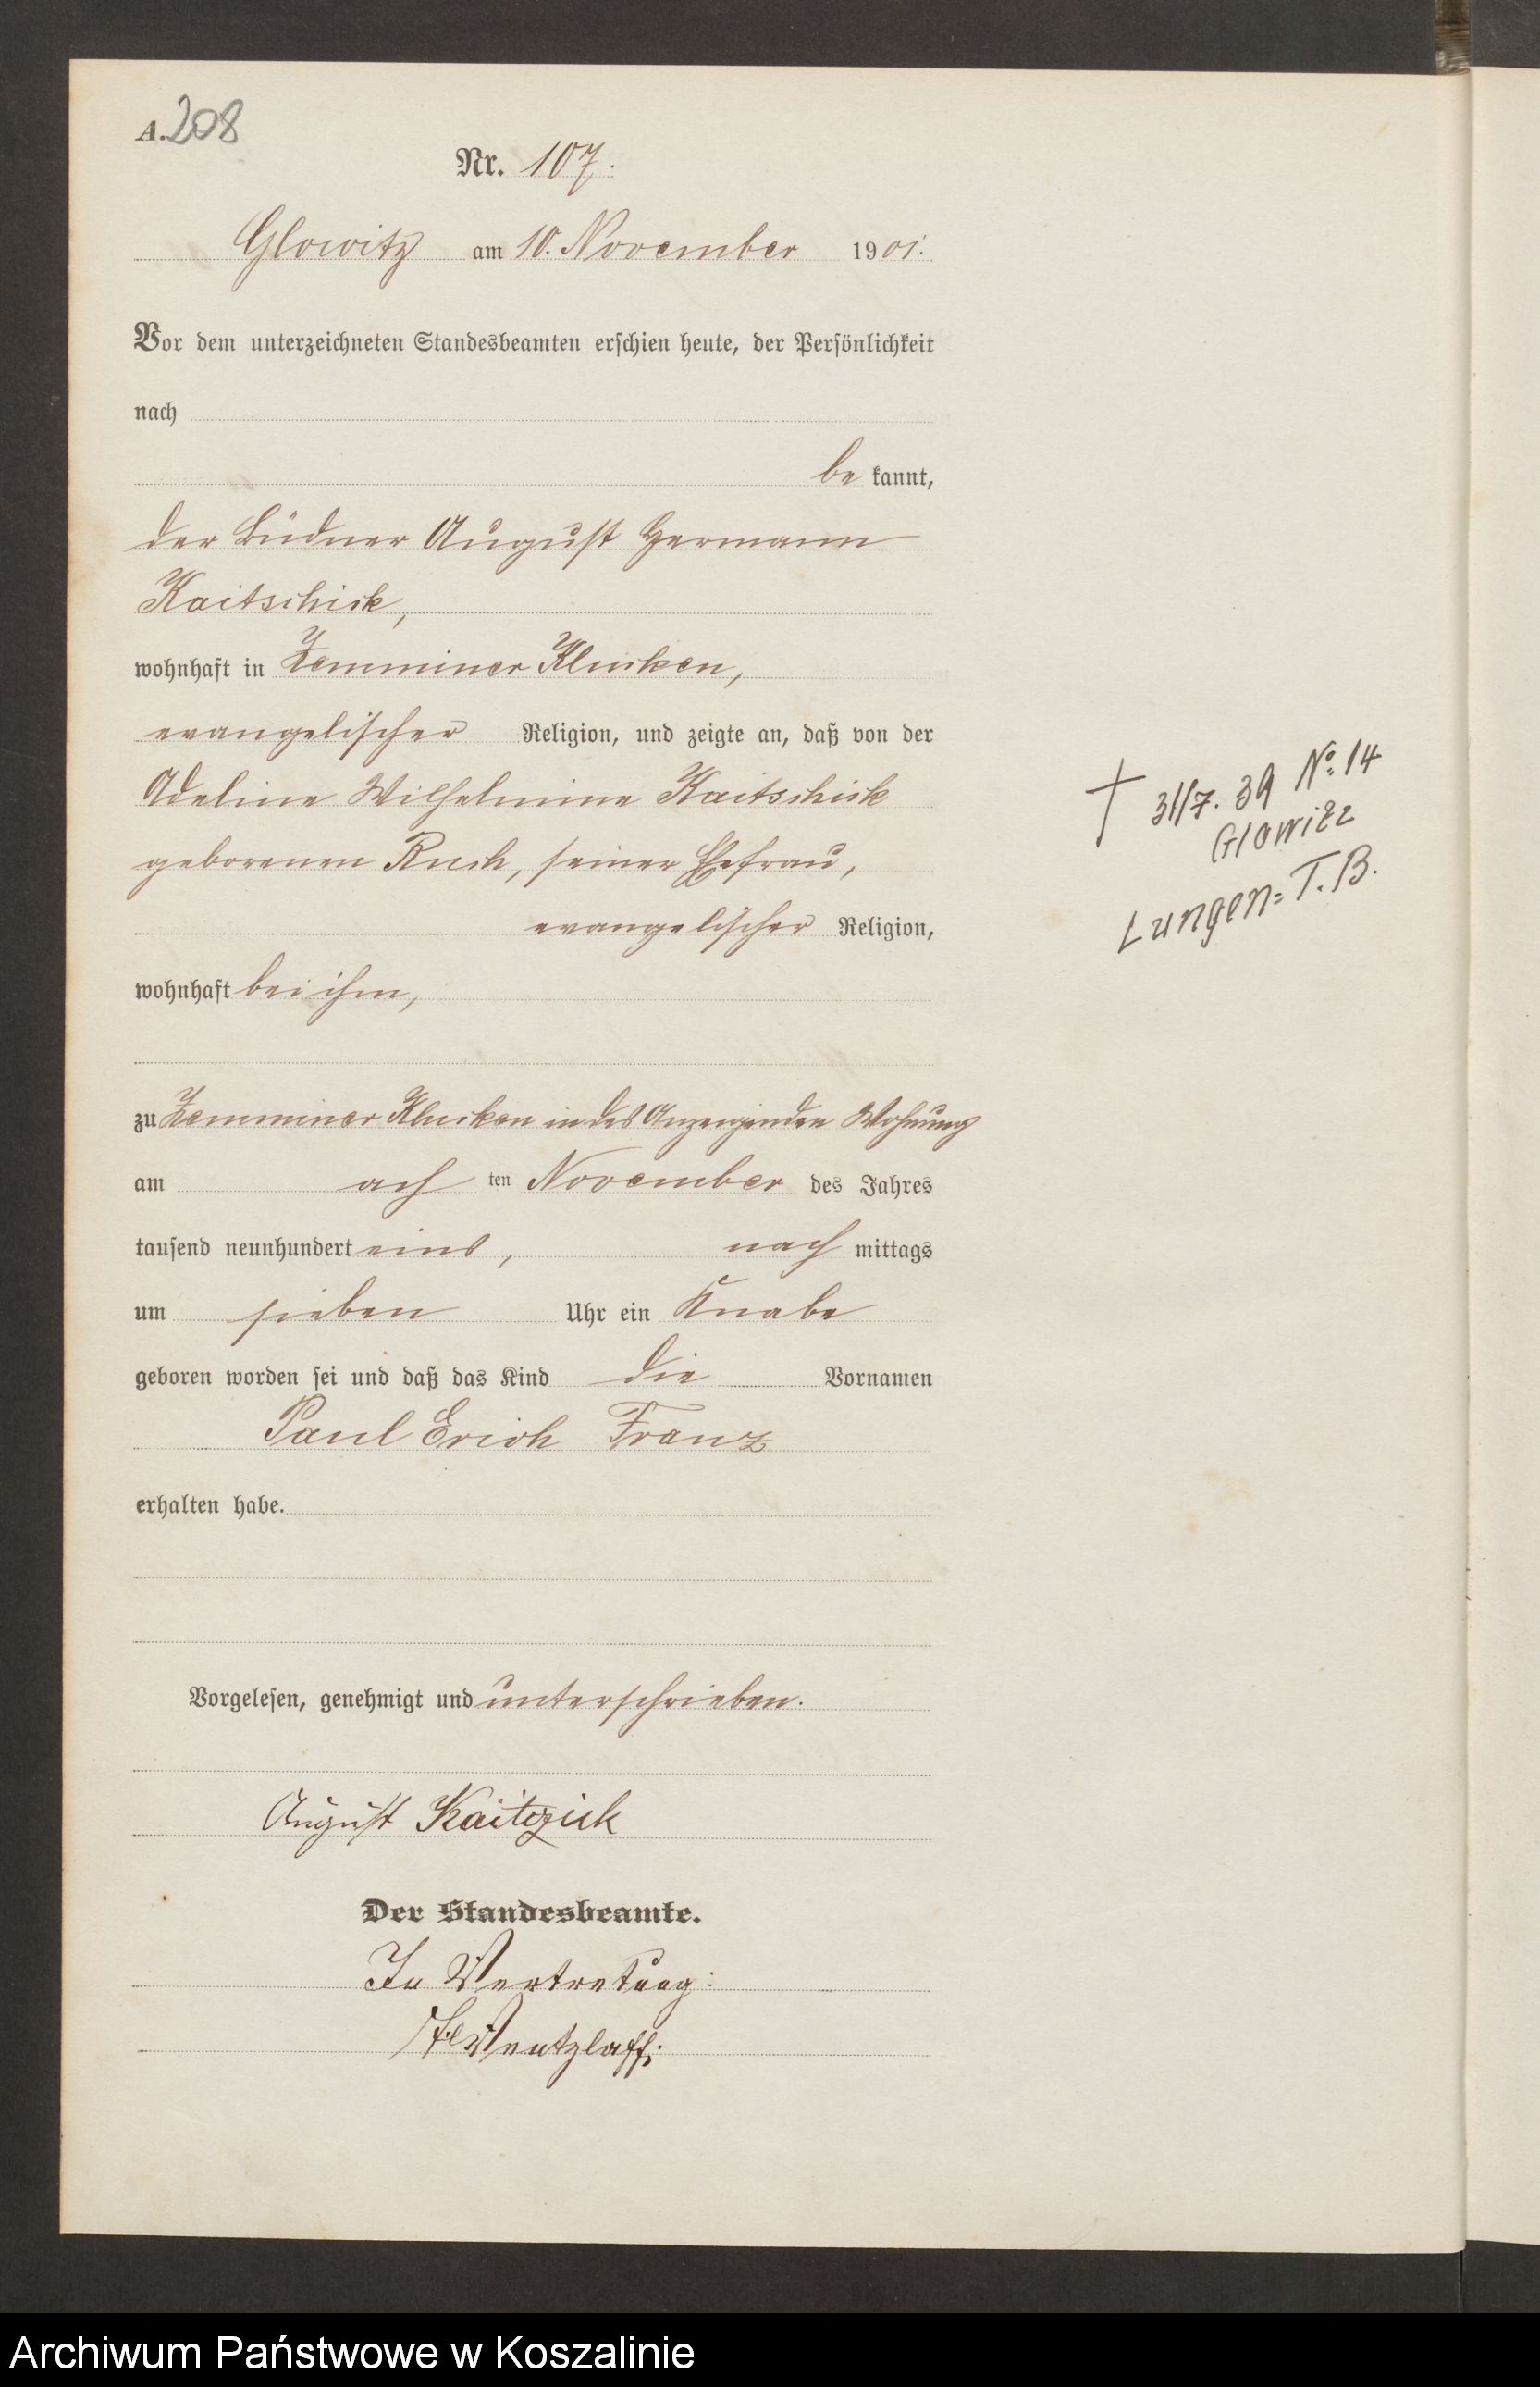 A. 208
Nr. 107.
Glowitz am 10. November 1901.
Vor dem unterzeichneten Standesbeamten erschien heute, der Persönlichkeit
nach
be kannt,
der Büdner August Hermann
Kaitschick,
wohnhaft in Zemminer Klucken,
evangelischer Religion, und zeigte an, daß von der
Adeline Wilhelmine Kaitschick
geborenen Ruch, seiner Ehefrau,
evangelischer Religion,
wohnhaft bei ihm,
zu Zemminer Klucken in des Anzeigenden Wohnung
am ach ten November des Jahres
tausend neunhundert eins, nach mittags
um sieben Uhr ein Knabe
geboren worden sei und daß das Kind die Vornamen
Paul Erich Franz
erhalten habe.
Vorgelesen, genehmigt und unterschrieben.
August Kaitzick
Der Standesbeamte.
In Vertretung:
Wentzlaff.
† 31/7. 39 No: 14
Glowitz
Lungen=T.B.
Archiwum Państwowe w Koszalinie